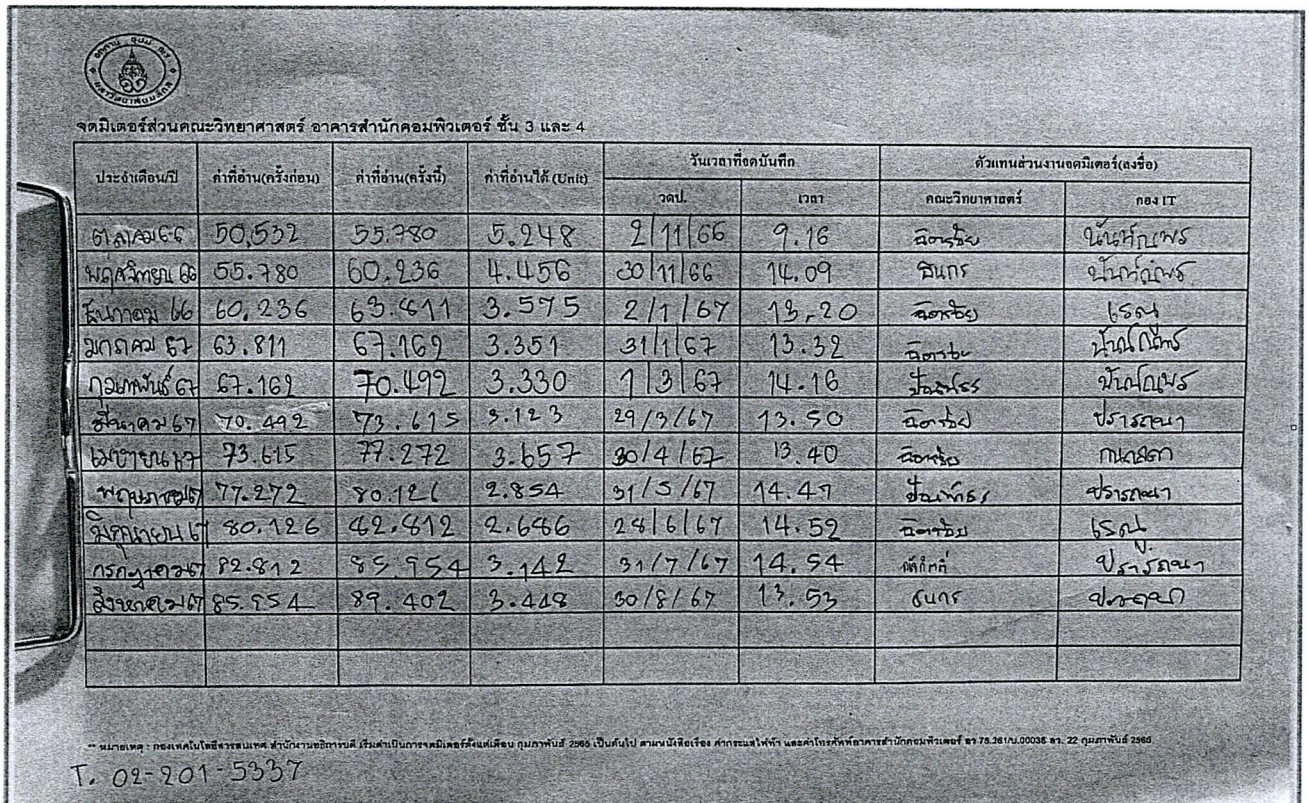 จดมิเตอร์ส่วนคณะวิทยาศาสตร์ อาคารสำนักคอมพิวเตอร์ ชั้น 3 และ 4
ประจำเดือน/ปี ค่าที่อ่าน(ครั้งก่อน) ค่าที่อ่าน(ครั้งนี้) ค่าที่อ่านได้ (Unit) วันเวลาที่จดบันทึก ตัวแทนส่วนงานจดมิเตอร์(ลงชื่อ)
วดป. เวลา คณะวิทยาศาสตร์ กอง IT
ตุลาคม 66 50,532 55.780 5.248 2/11/66 9.16 ฉัตรชัย นันท์ณพร
พฤศจิกายน 66 55.780 60.236 4.456 30/11/66 14.09 ธนกร นันท์ณพร
ธันวาคม 66 60.236 63.811 3.575 2/1/67 13.20 ฉัตรชัย เรณู
มกราคม 67 63.811 67.162 3.351 31/1/67 13.32 ฉัตรชัย นันท์ณพร
กุมภาพันธ์ 67 67.162 70.492 3.330 1/3/67 14.16 นันท์ณพร
มีนาคม 67 70.492 73.615 3.123 29/3/67 13.50 ฉัตรชัย ปรารถนา
เมษายน 67 73.615 77.272 3.657 30/4/67 13.40 ฉัตรชัย
พฤษภาคม 67 77.272 80.126 2.854 31/5/67 14.47 ปรารถนา
มิถุนายน 67 80.126 82.812 2.686 28/6/67 14.52 ฉัตรชัย เรณู
กรกฎาคม 67 82.812 85.954 3.142 31/7/67 14.54 ปรารถนา
สิงหาคม 67 85.954 89.402 3.448 30/8/67 13.53 ธนกร ปรารถนา
** หมายเหตุ : กองเทคโนโลยีสารสนเทศ สำนักงานอธิการบดี เริ่มดำเนินการจดมิเตอร์ตั้งแต่เดือน กุมภาพันธ์ 2565 เป็นต้นไป ตามหนังสือเรื่อง ค่ากระแสไฟฟ้า และค่าโทรศัพท์อาคารสำนักคอมพิวเตอร์ อว 78.361/น.00038 ลว. 22 กุมภาพันธ์ 2565
T. 02-201-5337